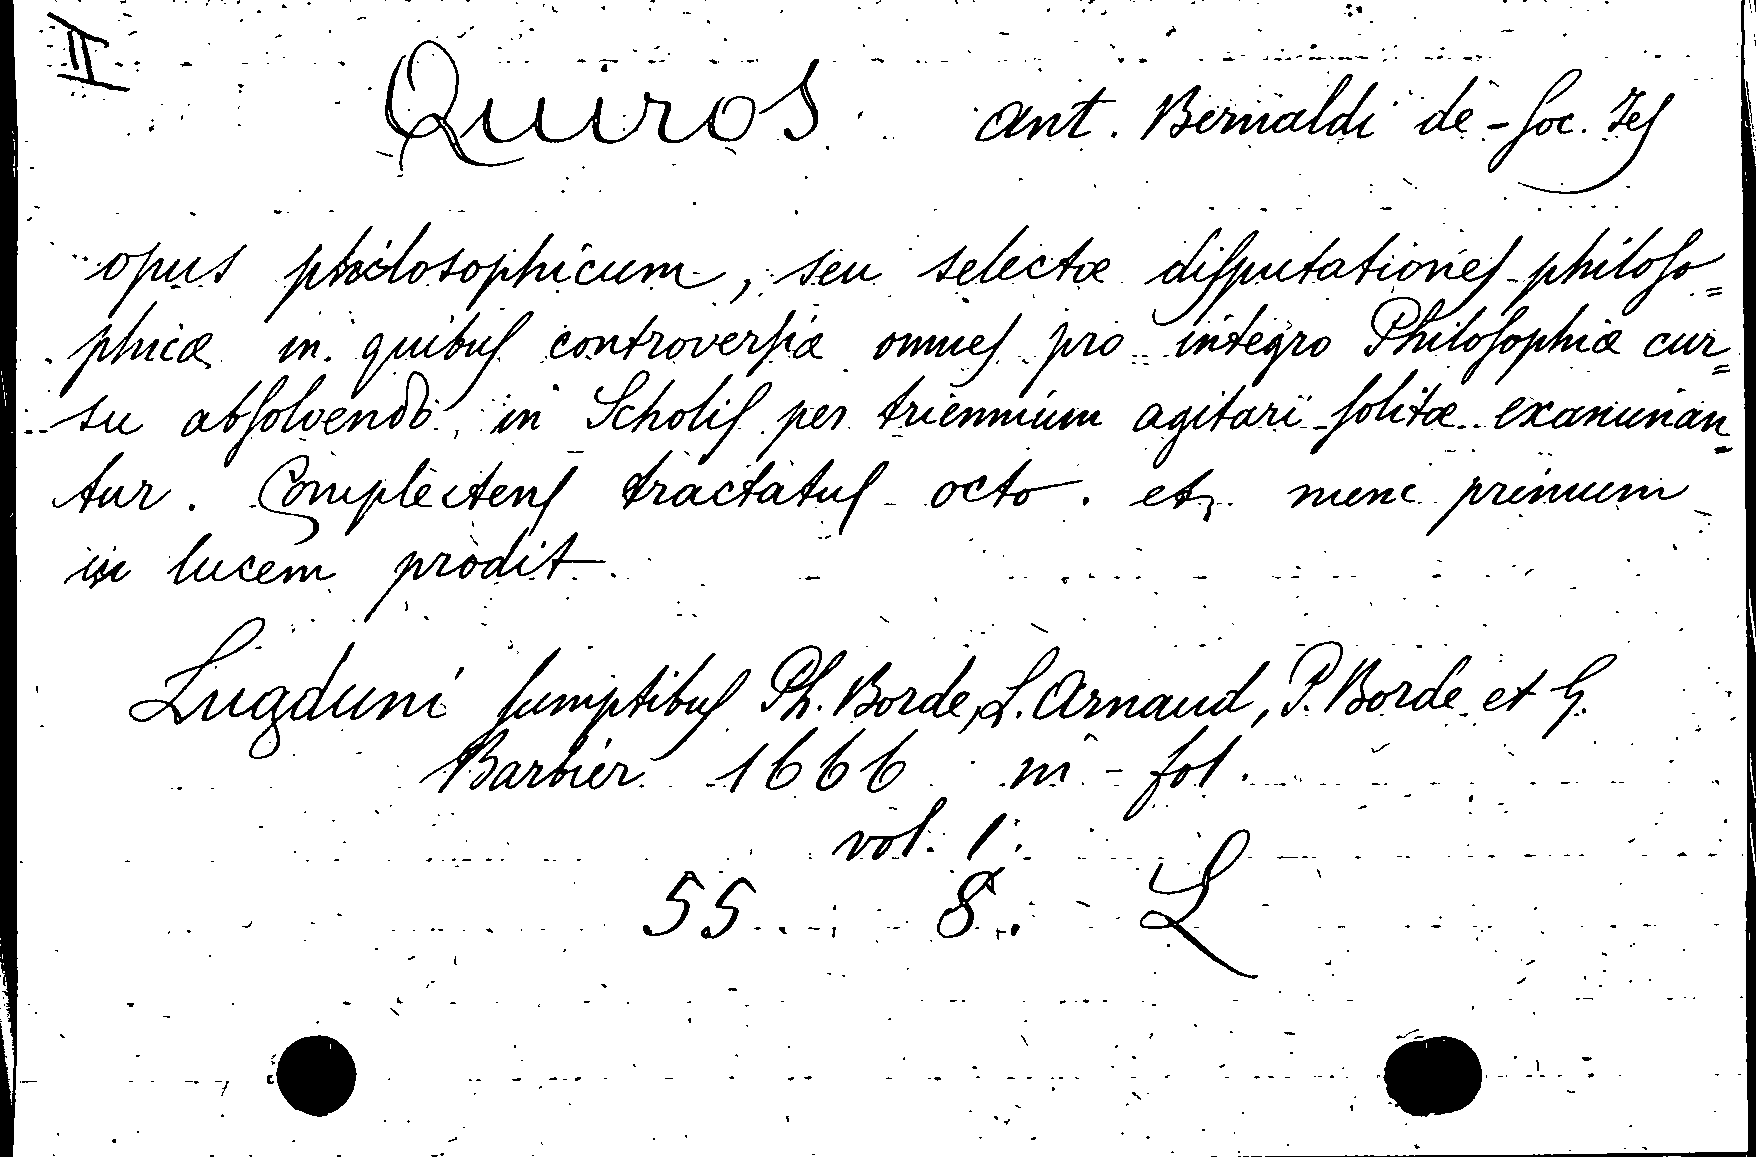 II
Quiros ant. Bernaldi de - Soc. Jes
opus philosophicum, seu selectæ disputationes philoso=
phicæ in quibus controversiæ omnes pro integro Philosophiæ cur=
su absolvendo, in Scholis per triennium agitari solitæ examinan=
tur. Complectens tractatus octo. et nunc primum
in lucem prodit.
Lugduni sumptibus Ph. Borde, L. Arnaud, P. Borde et G.
Barbier 1666 in-fol.
vol. 1.
55 8. L